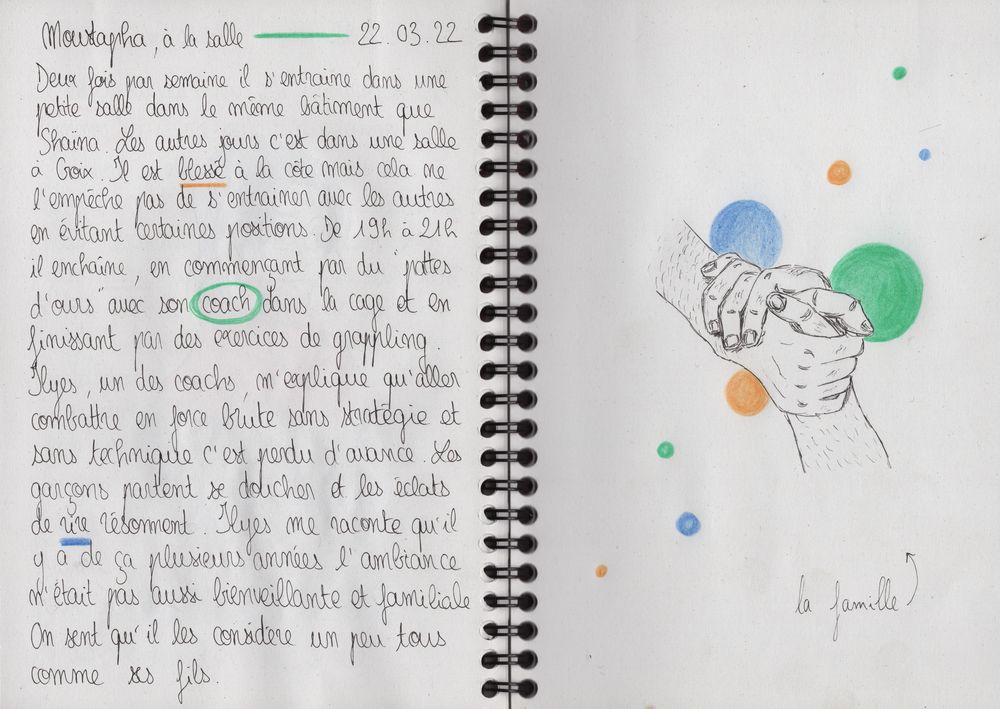 Moustapha, à la salle 22.03.22
Deux fois par semaine il s'entraine dans une
petite salle dans le même bâtiment que
Shaïna. Les autres jours c'est dans une salle
à Croix. Il est blessé à la côte mais cela ne
l'empêche pas de s'entrainer avec les autres
en évitant certaines positions. De 19h à 21h
il enchaîne, en commençant par du "pattes
d'ours" avec son coach dans la cage et en
finissant par des exercices de grappling.
Ilyes, un des coachs, m'explique qu'aller
combattre en force brute sans stratégie et
sans technique c'est perdu d'avance. Les
garçons partent se doucher et les éclats
de rire résonnent. Ilyes me raconte qu'il
y a de ça plusieurs années l'ambiance
n'était pas aussi bienveillante et familiale
On sent qu'il les considère un peu tous
comme ses fils.
la famille